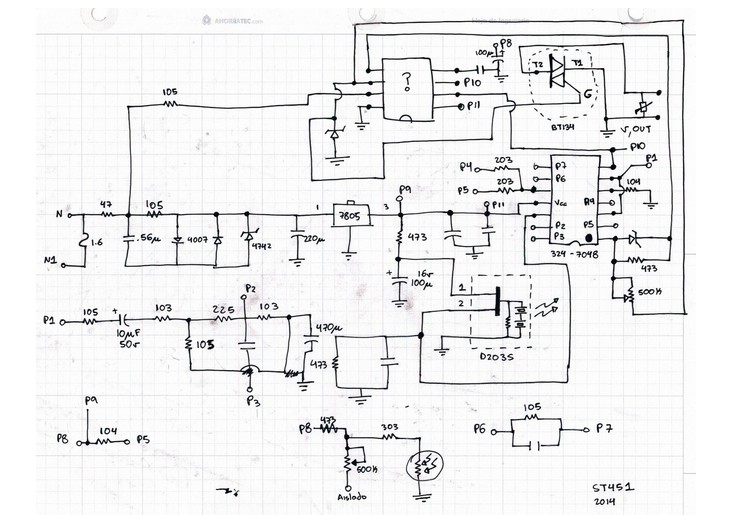 ARGOSBATEC.com
P8
100µ
T2
T1
?
P10
G
105
P11
BT134
V, OUT
P10
203
P4
P7
P1
P6
203
104
P5
47
105
P9
P11
Vcc
R4
N
1
7805
3
P2
P5
P3
1.6
.56µ
4007
4742
220µ
473
324 - 704B
473
+
16v
100µ
1
2
500K
P2
103
225
103
P1
105
+
10µF
50v
103
470µ
473
N1
D203S
P3
P9
P8
104
P5
P8
473
303
500K
Aislado
105
P6
P7
ST451
2014